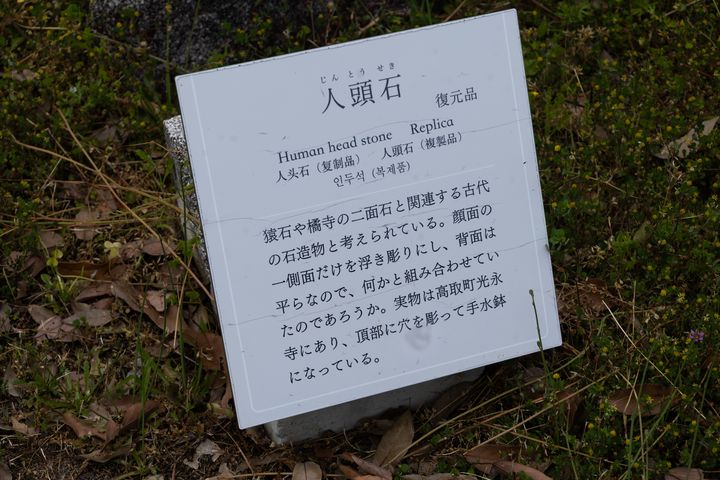 じんとうせき
人頭石 復元品
Human head stone Replica
人头石（复制品） 人頭石（複製品）
인두석 (복제품)
猿石や橘寺の二面石と関連する古代
の石造物と考えられている。顔面の
一側面だけを浮き彫りにし、背面は
平らなので、何かと組み合わせてい
たのであろうか。実物は高取町光永
寺にあり、頂部に穴を彫って手水鉢
になっている。